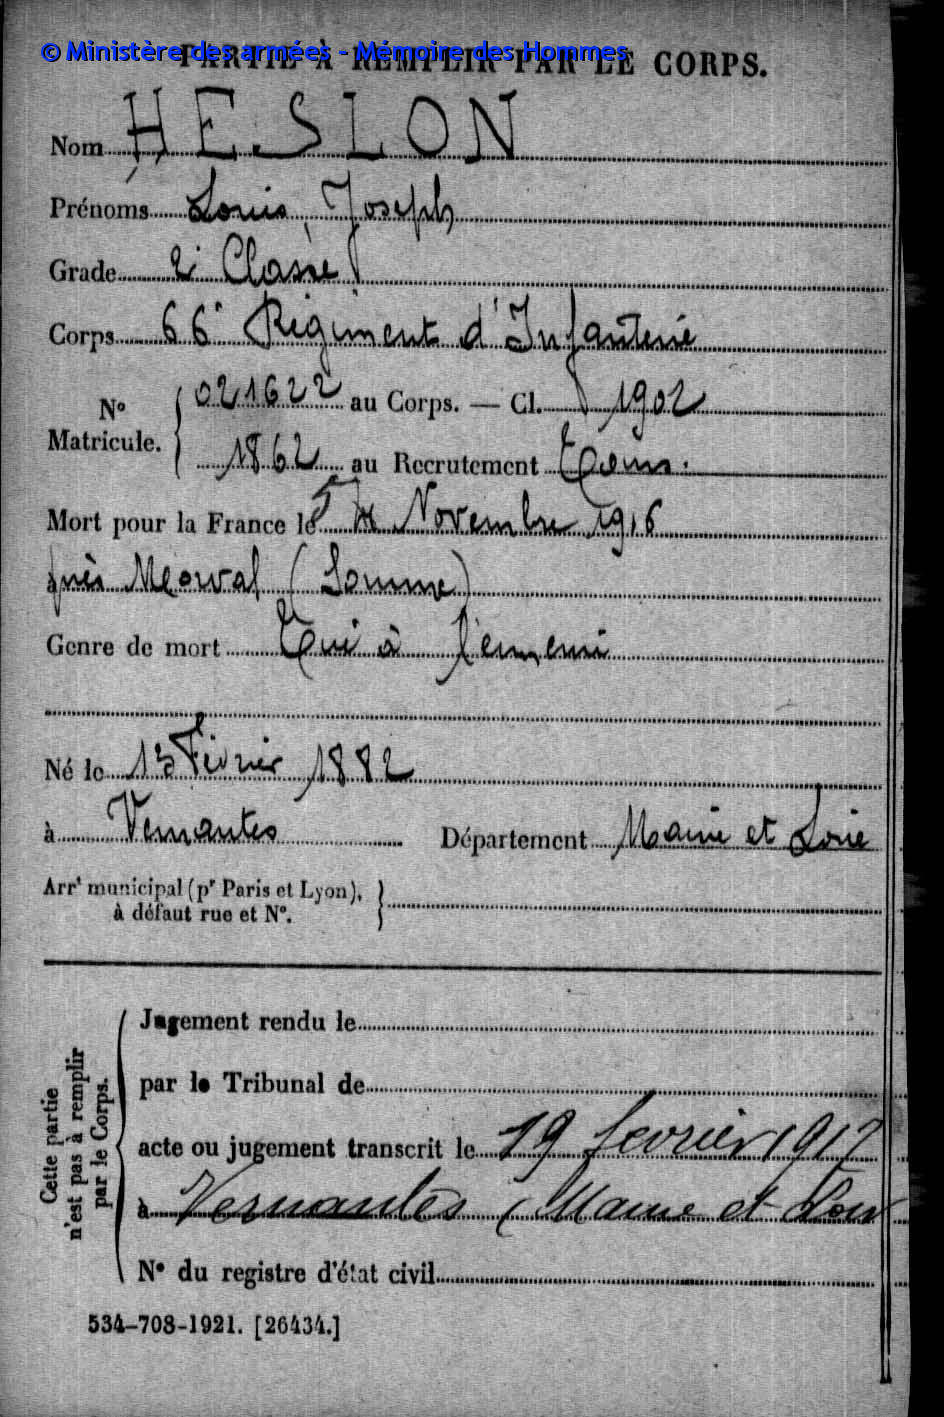 © Ministère des armées - Mémoire des Hommes
PARTIE À REMPLIR PAR LE CORPS.
Nom HESLON
Prénoms Louis, Joseph
Grade 2e Classe
Corps 66e Régiment d'Infanterie
N° Matricule. 021622 au Corps. — Cl. 1902
1862 au Recrutement Tours.
Mort pour la France le 5 Novembre 1916
près Morval (Somme)
Genre de mort Tué à l'ennemi
Né le 13 Février 1882
à Vernantes Département Maine et Loire
Arrt municipal (pr Paris et Lyon),
à défaut rue et N°.
Cette partie
n'est pas à remplir
par le Corps.
Jugement rendu le
par le Tribunal de
acte ou jugement transcrit le 19 février 1917
à Vernantes (Maine et Loir
N° du registre d'état civil
534-708-1921. [26434.]